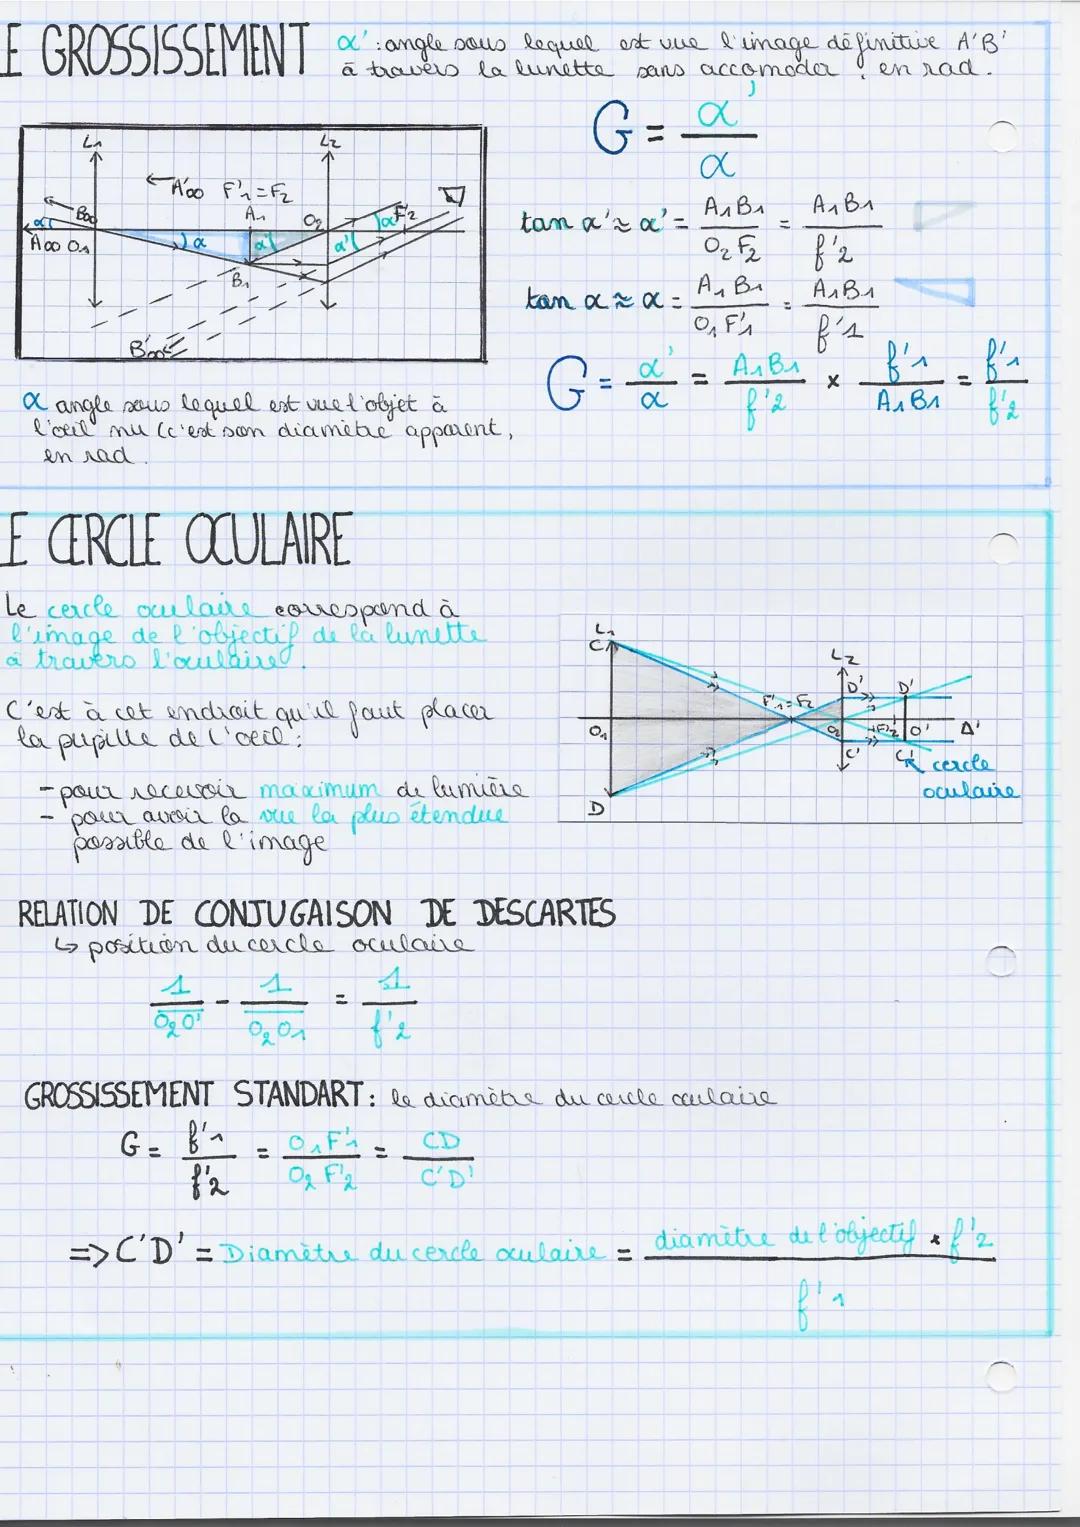 E GROSSISSEMENT
α' : angle sous lequel est vue l'image définitive A'B'
à travers la lunette sans accomoder, en rad.
G = α' / α
L1 L2
← A'∞ F'1 = F2
B∞ A1 O2 α' F'2
α
A∞ O1 α α' α'
B1
B'∞
tan α' ≈ α' = A1B1 / O2F2 = A1B1 / f'2
tan α ≈ α = A1B1 / O1F'1 = A1B1 / f'1
G = α' / α = A1B1 / f'2 × f'1 / A1B1 = f'1 / f'2
α angle sous lequel est vue l'objet à
l'œil nu (c'est son diamètre apparent,
en rad.
E CERCLE OCULAIRE
Le cercle oculaire correspond à
l'image de l'objectif de la lunette
à travers l'oculaire.
C'est à cet endroit qu'il faut placer
la pupille de l'œil :
- pour recevoir maximum de lumière
- pour avoir la vue la plus étendue
possible de l'image
L1
C L2
D' D'
F'1 = F2
O1 O2 F'2 O' Δ'
C' C' cercle
D oculaire
RELATION DE CONJUGAISON DE DESCARTES
↳ position du cercle oculaire
1 / O2O' - 1 / O2O1 = 1 / f'2
GROSSISSEMENT STANDART : le diamètre du cercle oculaire
G = f'1 / f'2 = O1F'1 / O2F'2 = CD / C'D'
=> C'D' = Diamètre du cercle oculaire = diamètre de l'objectif × f'2 / f'1